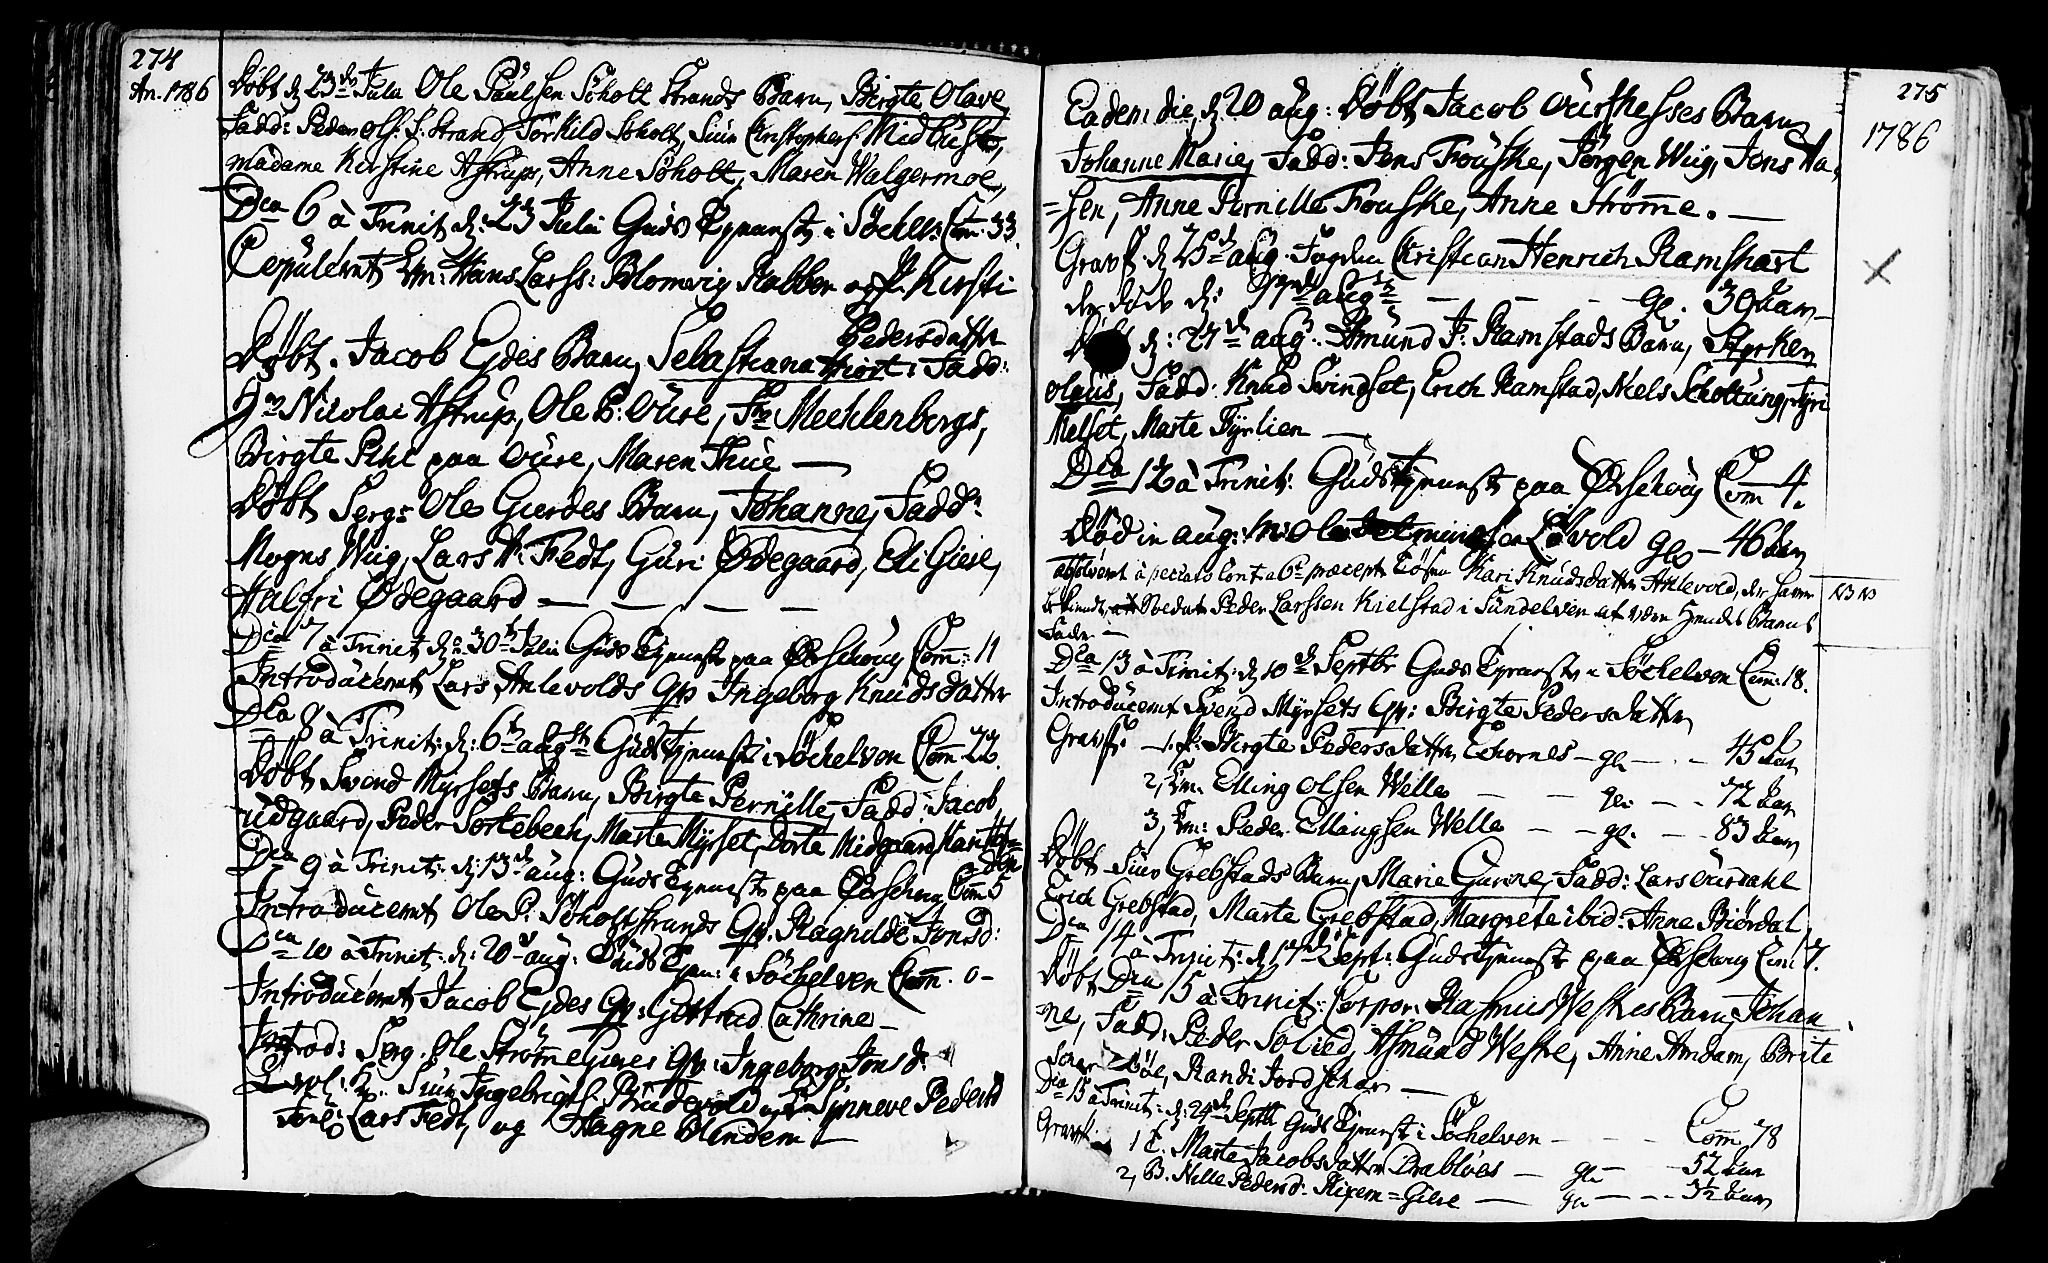 274
An. 1786
Døbt d. 23de Julii Ole Paulsen Søholt Strands Barn, Birgte Olave,
Fadd: Peder Ols: S: Strand, Torkild Søholt, Siur Christophers: Midthust,
Madame Kirstine Astrups, Anne Søholt, Maren Walgermoe,
Dca 6 à Trinit d: 23 Julii Guds Tjeneste i Söchelv: Com: 33.
Copulerent Em: Hans Larss: Blomvig Rabben og P. Kirsti
Pedersdatter
Døbt. Jacob Ejdes Barn, Sebastiana Hiort: Fadd:
Hr Nicolai Astrup, Ole P: Oure, Fr Mechlenbergs,
Birgte Pihl paa Oure, Maren Thue —
Døbt Serg: Ole Gierdes Barn, Johanne, Fadd:
Mogns Wiig, Lars A: Fedt, Guri Ødegaard, Eli Giere,
Halfri Ødegaard — — — —
Dca 7 à Trinit d: 30te Julii Guds Tjeneste paa Ørschoug Com: 11
Introducerent Lars Anlevolds Qv Ingeborg Knudsdatter
Dca 8 à Trinit: d: 6te augti Guds Tjeneste i Söchelven Com 22.
Døbt Svend Myrsets Barn, Birgte Pernille, Fadd: Jacob
udgaard, Peder Sortebech, Marte Myrset, Dorte Midgaard, Kari
Dca 9 à Trinit: d: 13de aug: Guds Tjeneste paa Ørschoug Com 5
Introducerent Ole P: Søholtstrands Qv. Ragnilde Jonsd:
Dca 10 à Trinit: d: 20de aug: Guds Tjen: i Söchelven Com. 0-
Introducerent Jacob Ejdes Qv: Gertrud Cathrine —
Introd: Serg. Ole Strømmegieres Qv: Ingeborg Jonsd:
Siur Ingebrigts: Brudevold og Synneve Pedersd
Lars Fedt, og Hagne Blindem

275
1786
Eadem die, d. 20 aug: Døbt Jacob Ourskesses Barn
Johanne Marie, Fadd: Jens Frouske, Jørgen Wiig, Jens Aa,
=sen, Anne Pernille Frouske, Anne Strømme. —
Gravf. d. 25de aug. Fogden Christian Henrich Ramshart
der døde d: 17de augti — — — gl. 39 aar —
Døbt d: 27de aug. Amund J: Ramstads Barn, Styrken
Olaus, Fadd: Knud Svindset, Erich Ramstad, Niels Scholtung, Gyri
Melset, Marte Tyrlien —
Dca 12 à Trinit: Guds Tjeneste paa Ørschoug Com 4.
Død in aug: m: Ole Løvold gl — 46 aar
absolvert à peccato contra 6te præcept: Løsen Kari Knudsdatter Anlevold, der haver
bekiendt, Soldat Peder Larssen Kielstad i Sundelven at være hendes Barns
Fader —
NB NB
Dca 13 à Trinit: d 10de Septbr Guds Tjeneste i Söchelven Com: 18.
Introducerent Svend Myrsets Qv: Birgte Pedersdatter
Gravf: 1. P. Birgte Pedersdatter Tchornes — gl — - — 45 aar
2, Em. Elling Olsen Welle — — gl: — - 72 aar
3, Em: Peder Ellingsen Welle — — gl. — - 83 aar
Døbt Siur Grebstads Barn, Marie Gurine, Fadd: Lars Ourdahl
Erich Grebstad, Marte Grebstad, Margrete ibid: Anne Biørdal,
Dca 14 à Trinit: d 17de Sept: Guds Tjeneste paa Ørschoug Com: 7.
Døbt Dca 15 à Trinit: Corpor: Rasmus Weskes Barn, Johan
=ne, Fadd: Peder Solied, Asmund Weske, Anne Amdam, Brite
Randi Jordschar —
Dca 15 à Trinit: d: 24de Septbr Guds Tjeneste i Söchelven — — — Com. 78
Gravf. 1 C. Marte Jacobsdatter Drabløes — gl — — 52 aar
2, B. Nille Pedersd: Rixem=Giere — gl — - - 3½ aar